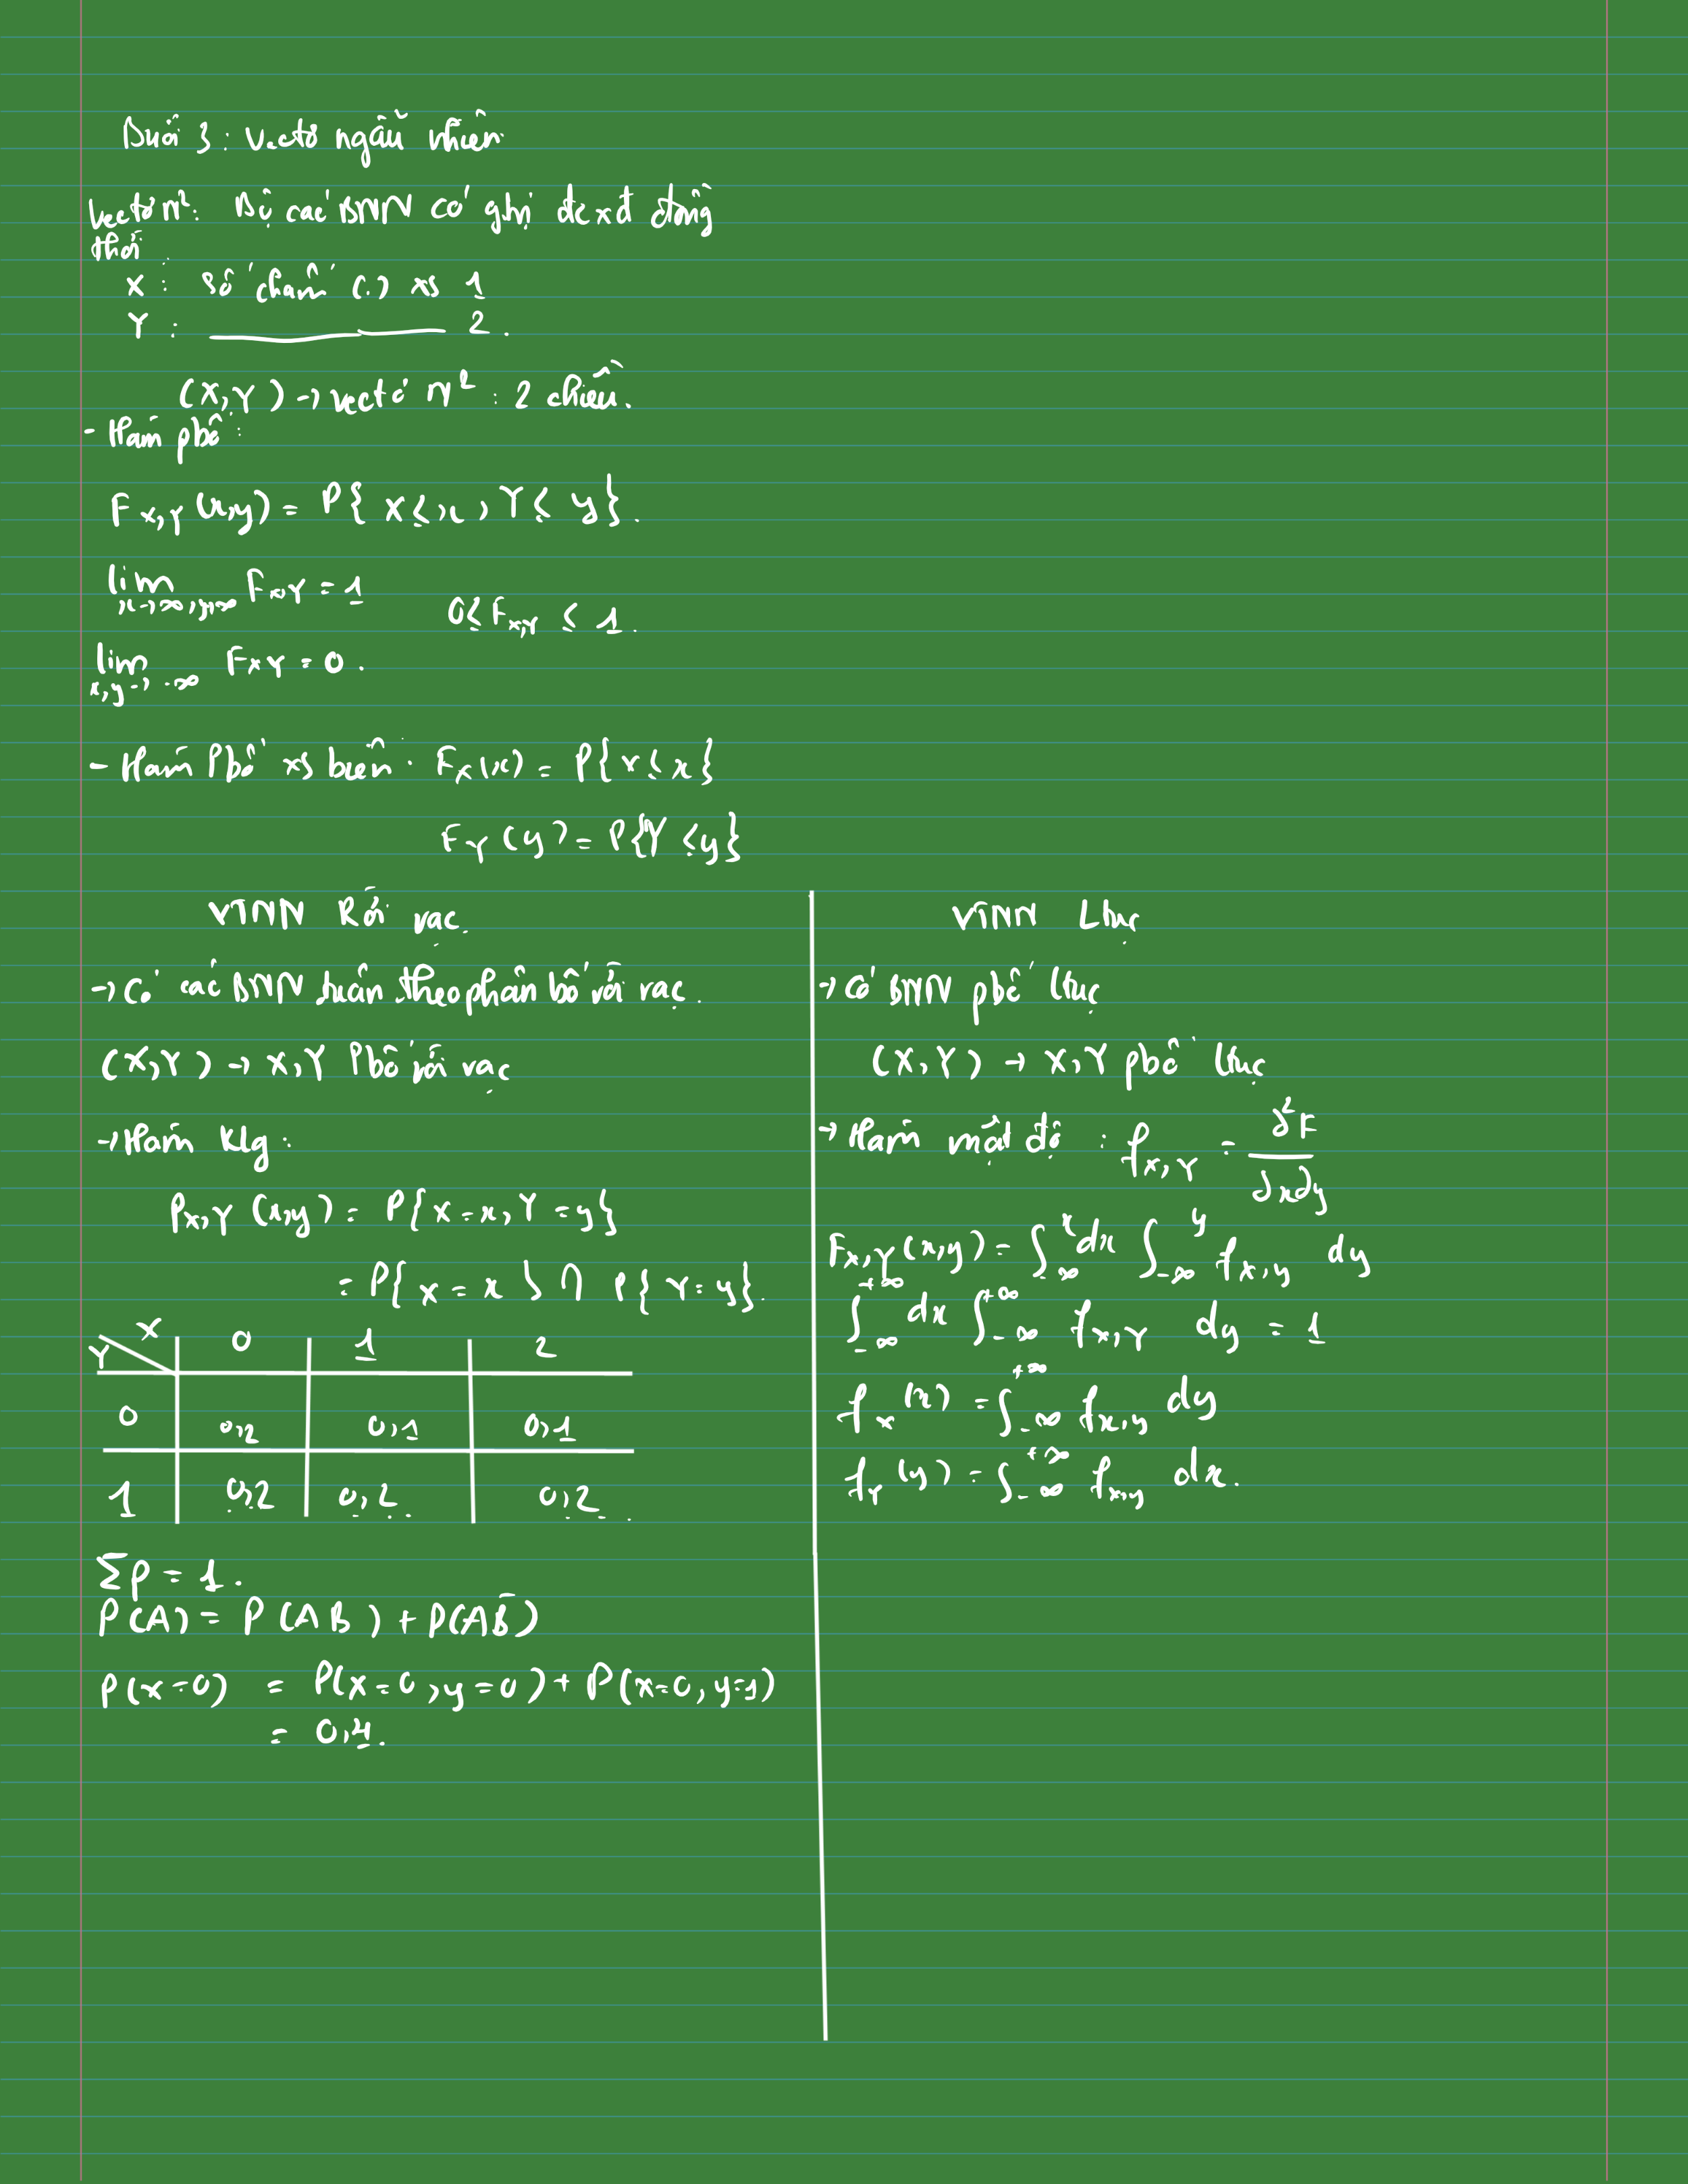 Buổi 3: Vectơ ngẫu nhiên
Vectơ n²: Bộ các BNN có gtrị đc xđ đồng
thời
X : Số chấm (.) xs 1
Y : ——— 2.
(X,Y) → vectơ n² : 2 chiều.
- Hàm pbố:
F_{X,Y}(x,y) = P{ X ≤ x, Y ≤ y}.
lim_{x→∞, y→∞} F_{X,Y} = 1
0 ≤ F_{X,Y} ≤ 1.
lim_{x,y→-∞} F_{XY} = 0.
- Hàm Pbố xs biên: F_X(x) = P{X ≤ x}
F_Y(y) = P{Y ≤ y}
VTNN Rời rạc.
→ Có các BNN tuân theo phân bố rời rạc.
(X,Y) → X,Y Pbố rời rạc
→ Hàm klg:
P_{X,Y}(x,y) = P{X = x, Y = y}
= P{X = x} ∩ P{Y = y}.
Y X 0 1 2
0 0,2 0,1 0,1
1 0,2 0,2 0,2.
Σp = 1.
P(A) = P(AB) + P(AB̄)
P(x=0) = P(X=0, y=0) + P(x=0, y=1)
= 0,4.
VTNN Ltục
→ Có BNN pbố ltục
(X,Y) → X,Y pbố ltục
→ Hàm mật độ : f_{X,Y} = ∂²F / ∂x∂y
F_{X,Y}(x,y) = ∫_{-∞}^{x} dx ∫_{-∞}^{y} f_{x,y} dy
∫_{-∞}^{+∞} dx ∫_{-∞}^{+∞} f_{X,Y} dy = 1
f_X(x) = ∫_{-∞}^{+∞} f_{x,y} dy
f_Y(y) = ∫_{-∞}^{+∞} f_{x,y} dx.